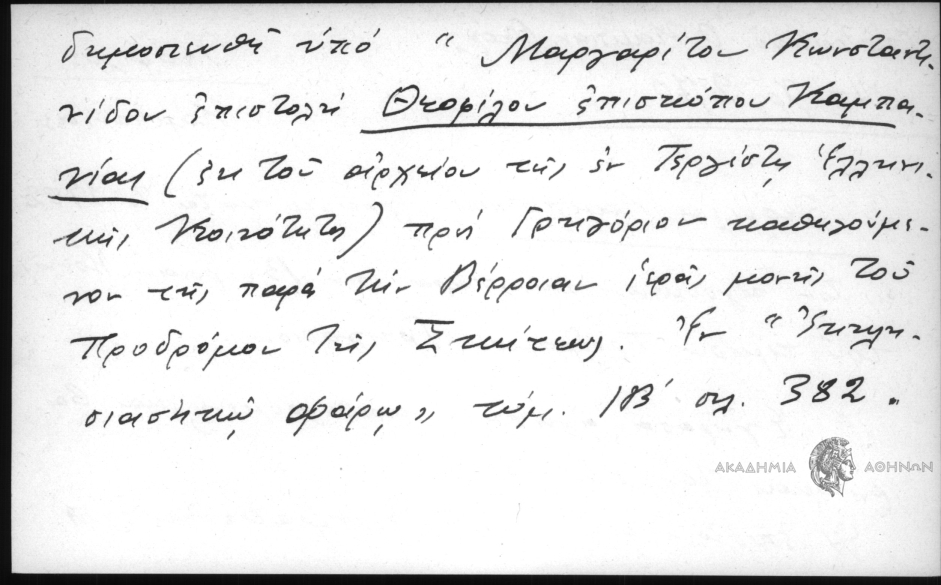 δημοσιευθῆ ὑπὸ “ Μαργαρίτου Κωνσταντι-
νίδου ἐπιστολὴ Θεοφίλου ἐπισκόπου Καμπα-
νίας (ἐκ τοῦ ἀρχείου τῆς ἐν Τεργέστῃ Ἑλληνι-
κῆς Κοινότητος) πρὸς Γρηγόριον καθηγούμε-
νον τῆς παρὰ τὴν Βέρροιαν ἱερᾶς μονῆς τοῦ
Προδρόμου τῆς Σκήτεως. Ἐν “Ἐκκλη-
σιαστικῷ Φάρῳ„ τόμ. ΙΒ΄ σελ. 382.
ΑΚΑΔΗΜΙΑ ΑΘΗΝΩΝ